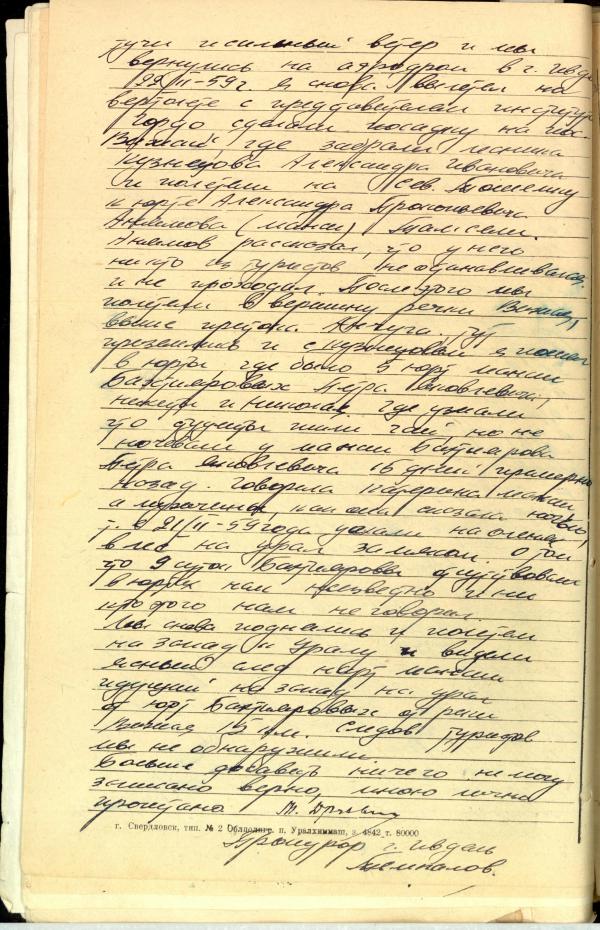 тучи и сильный ветер и мы
вернулись на аэродром в г. Ивд
22/II-59 г. я снова вылетел на
вертолете с представителем института
Гордо сделали посадку на пос.
Вижай где забрали лесника
Кузнецова Александра Ивановича
и полетели на Сев. Тошемку
к юрте Александра Прокопьевича
Анямова (манси)
Анямов рассказал, что у него
никто из туристов не останавливался
и не проходил. После этого мы
полетели в вершину речки Вижай,
выше притока Анчуга. Тут
приземлись и с Кузнецовым я пошел
в юрты, где было 5 юрт манси
Бахтияровых Петра Яковлевича,
и Николая. Где узнали
что туристы пили чай, но не
ночевали у манси Бахтиярова
Петра Яковлевича 16 дней примерно
назад. говорила Катерина манси
а мужчины как она сказала ночью,
т.е 21/II-59 года уехали на оленях
в лес на урал за мясом. О том
что 9 суток Бахтияровы отсутствовали
в юртах нам неизвестно и ни
кто этого нам не говорил.
Мы снова поднялись и полетели
на запад к Уралу и видели
ясный след нарт манси
идущий на запад на урал
от юрт Бахтияровых от реки
Вижая 15 км. Следов туристов
мы не обнаружили.
Больше добавить ничего не могу
записано верно, мною лично
прочитано
г. Свердловск, тип. № 2 Облполигр. п. Уралхиммаш, з. 4842 т. 80000
Прокурор г. Ивдель
Темпалов.